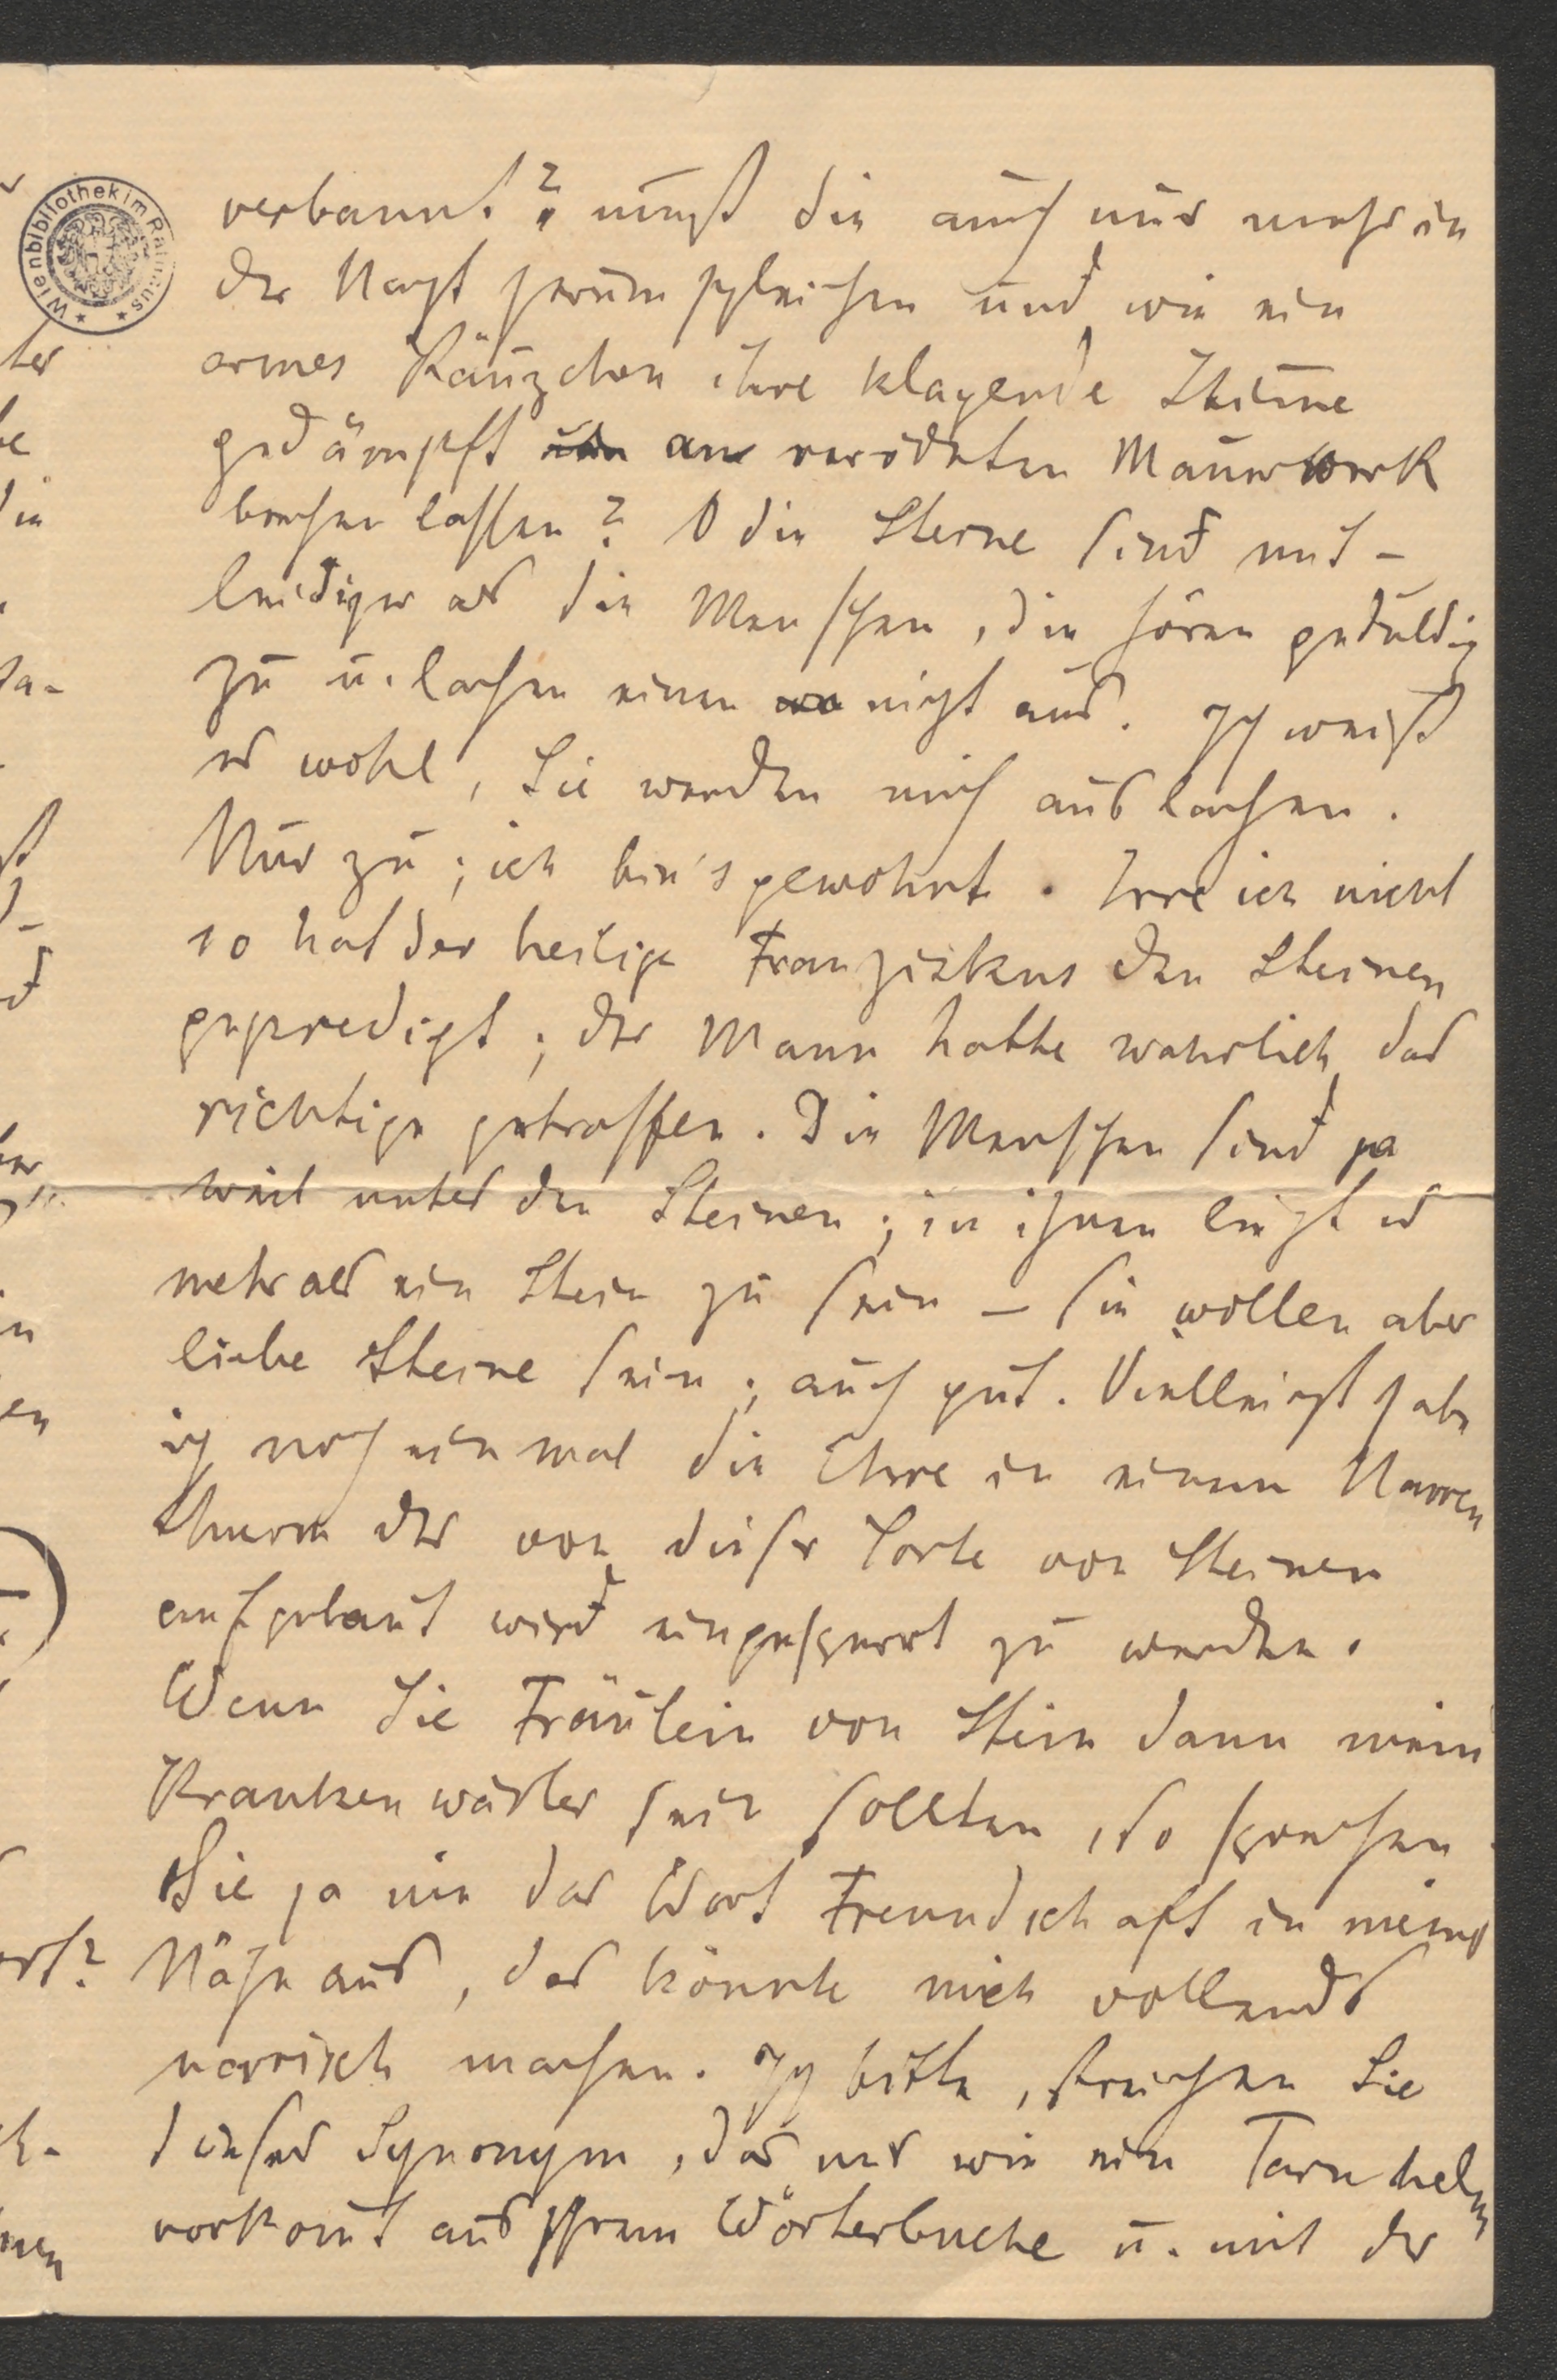 Wienbibliothek im Rathaus
verbannt? muß die auch nur mehr in
der Nacht herumschleichen und wie ein
armes Käuzchen ihre klagende Stim̅e
gedämpft am verödeten Mauerwerk
brechen lassen? O die Steine sind mit-
leidiger als die Menschen, die hören geduldig
zu u. lachen einen nicht aus. Ich weiß
es wohl, Sie werden mich auslachen.
Nur zu; ich bin's gewohnt. Irre ich nicht
so hat der heilige Franziskus den Steinen
gepredigt; der Mann hatte wahrlich das
richtige getroffen. Die Menschen sind ja
weit unter den Steinen; in ihnen liegt es
mehr als ein Stein zu sein – sie wollen aber
liebe Steine sein; auch gut. Vielleicht habe
ich noch einmal die Ehre in einem Narren
thurm der von dieser Sorte von Steinen
aufgebaut wird eingesperrt zu werden.
Wenn Sie Fräulein von Stein dann mein
Krankenwärter sein sollten, so sprechen
Sie ja nie das Wort Freundschaft in meiner
Nähe aus, das könnte mich vollends
narrisch machen. Ich bitte, streichen Sie
dieses Synonym, das mir wie ein Tarnhelm
vorkom̅t aus Ihrem Wörterbuche u. mit der